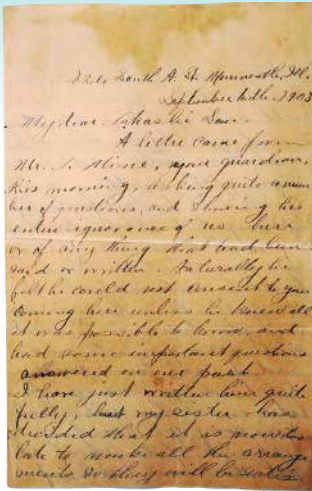 South A. St. Monmouth, Ill.
September 1903
My dear Takashi San.
A letter came from
Mr. S. Mine, your guardian,
this morning, asking quite a num
ber of questions, and showing his
entire ignorance of us here
or of any thing that had been
said or written. Naturally he
felt he could not consent to your
coming here unless he knew all
it was possible to know, and
had some important questions
answered on our part.
I have just written him quite
fully, but my sister has
decided that it is now too
late to make all the arrange
ments so they will be